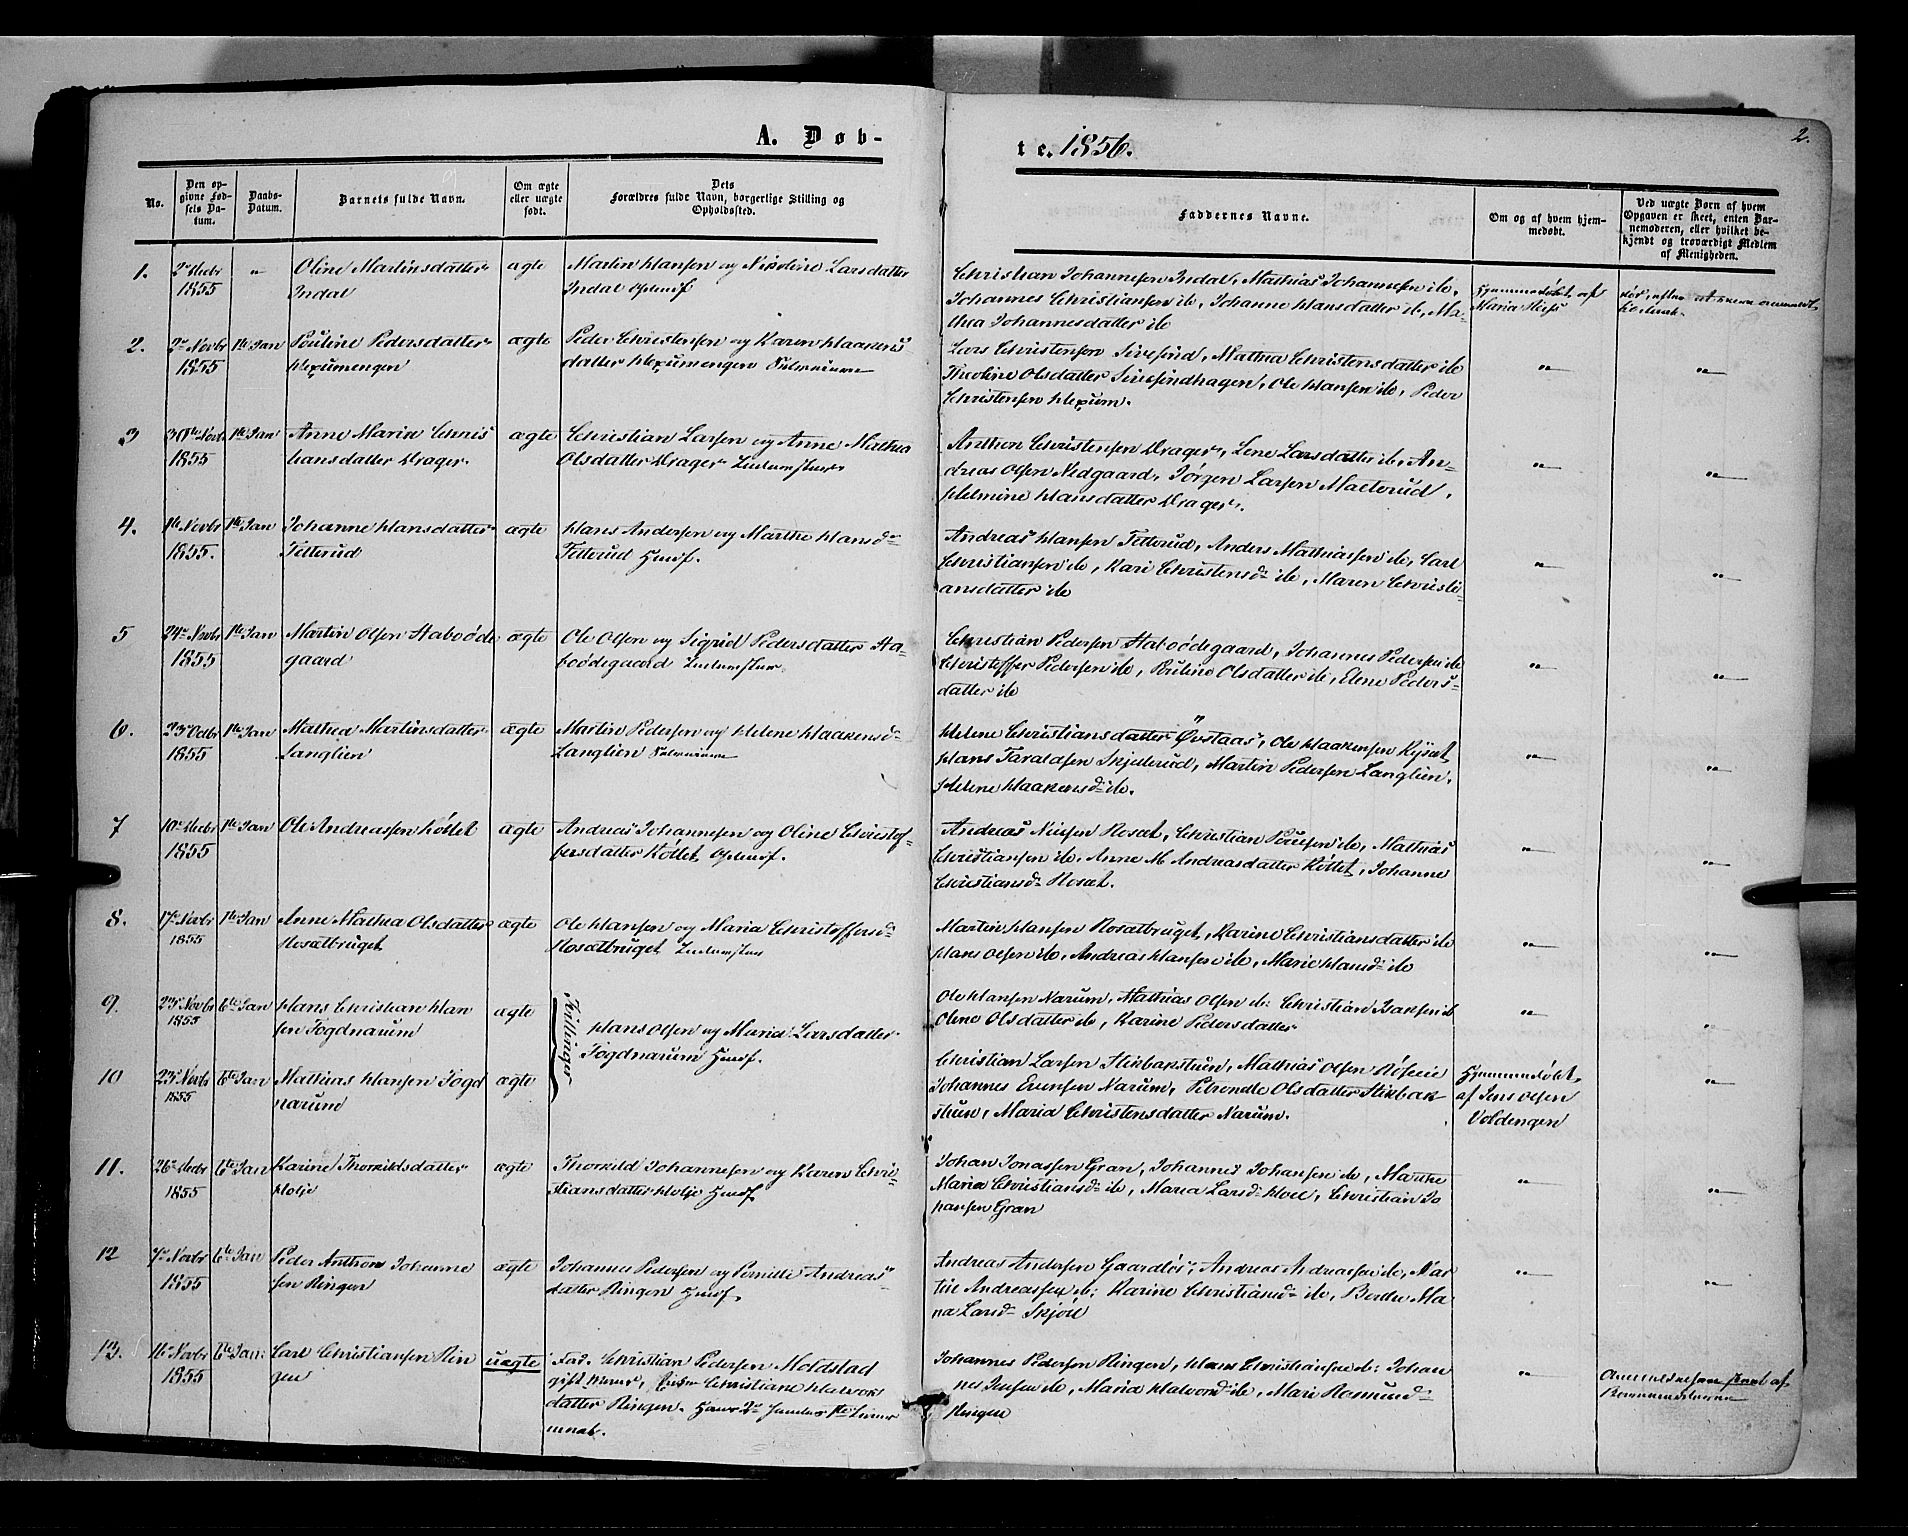 A. Døb-
te. 1856.
2.
No.
Den op-
givne Fød-
sels Da-
tum.
Daabs-
Datum.
Barnets fulde Navn.
Om ægte
eller uægte
født.
Dets
Forældres fulde Navn, borgerlige Stilling og
Opholdssted.
Faddernes Navne.
Om og af hvem hjem-
medøbt.
Ved uægte Børn af hvem
Opgaven er skeet, enten Bar-
nemoderen, eller hvilket be-
kjendt og troværdigt Medlem
af Menigheden.
1.
1855
Oline Martinsdatter
Indal
ægte
Martin Hansen og Nicoline Larsdatter
Indal
Christian Johannesen Indal, Mathias Johannesen ib.
Johannes Christiansen ib, Johanne Hansdatter ib, Ma-
thea Johannesdatter ib
Hjemmedøbt af
Maria
død, efter at
2.
2 Novbr
1855
1te Jan
Pouline Pedersdatter
Hexumengen
ægte
Peder Christensen og Karen Haakens
datter Hexumengen
Lars Christensen Sivesind, Mathea Christensdatter ib
Theoline Olsdatter Sivesindhagen, Ole Hansen ib, Peder
Christensen Hexum.
3
30te Novb
1855
1te Jan
Anne Maria Chris
tiansdatter Drager
ægte
Christian Larsen og Anne Mathea
Olsdatter Drager
Anthon Christensen Drager, Lene Larsdatter ib, An-
dreas Olsen Nedgaard, Jørgen Larsen
Helmine Hansdatter Drager.
4.
1te Novbr
1855.
1te Jan
Johanne Hansdatter
Tetterud
ægte
Hans Andersen og Marthe Hansd
Tetterud Huusf.
Andreas Hansen Tetterud, Anders Mathiassen ib, Carl
Christiansen ib, Kari Christensd ib, Maren Christi-
ansdatter ib
5
24 Novbr
1855
1te Jan
Martin Olsen Staboøde
gaard
ægte
Ole Olsen og Sigrid Pedersdatter Sta-
boødegaard
Christian Pedersen Staboødegaard, Johannes Pedersen ib
Christoffer Pedersen ib, Pouline Olsdatter ib, Elene Peders-
datter ib
6.
23 Octbr
1855
1te Jan
Mathea Martinsdatter
Langlien
ægte
Martin Pedersen og Helene Haakensd
Langlien
Helene Christiansdatter Øvstaas, Ole Haakensen
Hans Taraldsen Skjellerud, Martin Pedersen Langlien,
Helene Haakensd ib.
7
10
1855
1te Jan
Ole Andreassen Køltet
ægte
Andreas Johannesen og Oline Christof-
fersdatter Køltet
Andreas Nilsen Rosæt, Christian Poulsen ib, Mathias
Christiansen ib, Anne M. Andreasdatter Køltet, Johanne
Christiansd Rosæt.
8.
17 Novbr
1855
1te Jan
Anne Mathea Olsdatter
Rosætbruget
ægte
Ole Hansen og Maria Christoffersd
Rosætbruget
Martin Hansen Rosætbruget, Karine Christiansdatter ib
Hans Olsen ib, Andreas Hansen ib, Marie Hansd ib
9.
23 Novbr
1855
6te Jan
Hans Christian Han
sen Fogdnarum
ægte
Tvillinger
Hans Olsen og Maria Larsdatter
Fogdnarum Huusf.
Ole Hansen Narum, Mathias Olsen ib: Christian Isaksen ib
Oline Olsdatter ib, Karine Pedersdatter
10
23 Novbr
1855
6te Jan
Mathias Hansen Fogd
narum
ægte
Christian Larsen Stikbakstuen, Mathias Olsen
Johannes Evensen Narum, Petronelle Olsdatter Stikbak
stuen, Maria Christensdatter Narum.
Hjemmedøbt
af Jens Olsen
Voldengen
11.
26
1855
6te Jan
Karine Thorkildsdatter
ægte
Thorkild Johannesen og Karen Chri-
stiansdatter Huusf
Johan Jonassen Gran, Johannes Johansen ib, Marthe
Maria Christiansd ib, Maria Larsd Christian Jo
hansen Gran
12
7 Novbr
1855
6te Jan
Peder Anthon Johanne
sen Ringen
ægte
Johannes Pedersen og Pernille Andreas
datter Ringen Huusf.
Andreas Andersen Gaardløs, Andreas Andreassen ib, Mar
tin Andreassen ib: Karine Christiansd ib, Berthe Ma
ria Larsd
13.
16 Novbr
1855
6te Jan:
Carl Christiansen Rin
gen
uægte
Fad. Christian Pedersen Molstad
gift Christiane Halvors
datter Ringen.
Johannes Pedersen Ringen, Hans Christiansen ib: Johan
nes Jensen ib, Maria Halvorsd ib, Mari
Ringen
Anmeldelsen skeet af
Barnemoderen